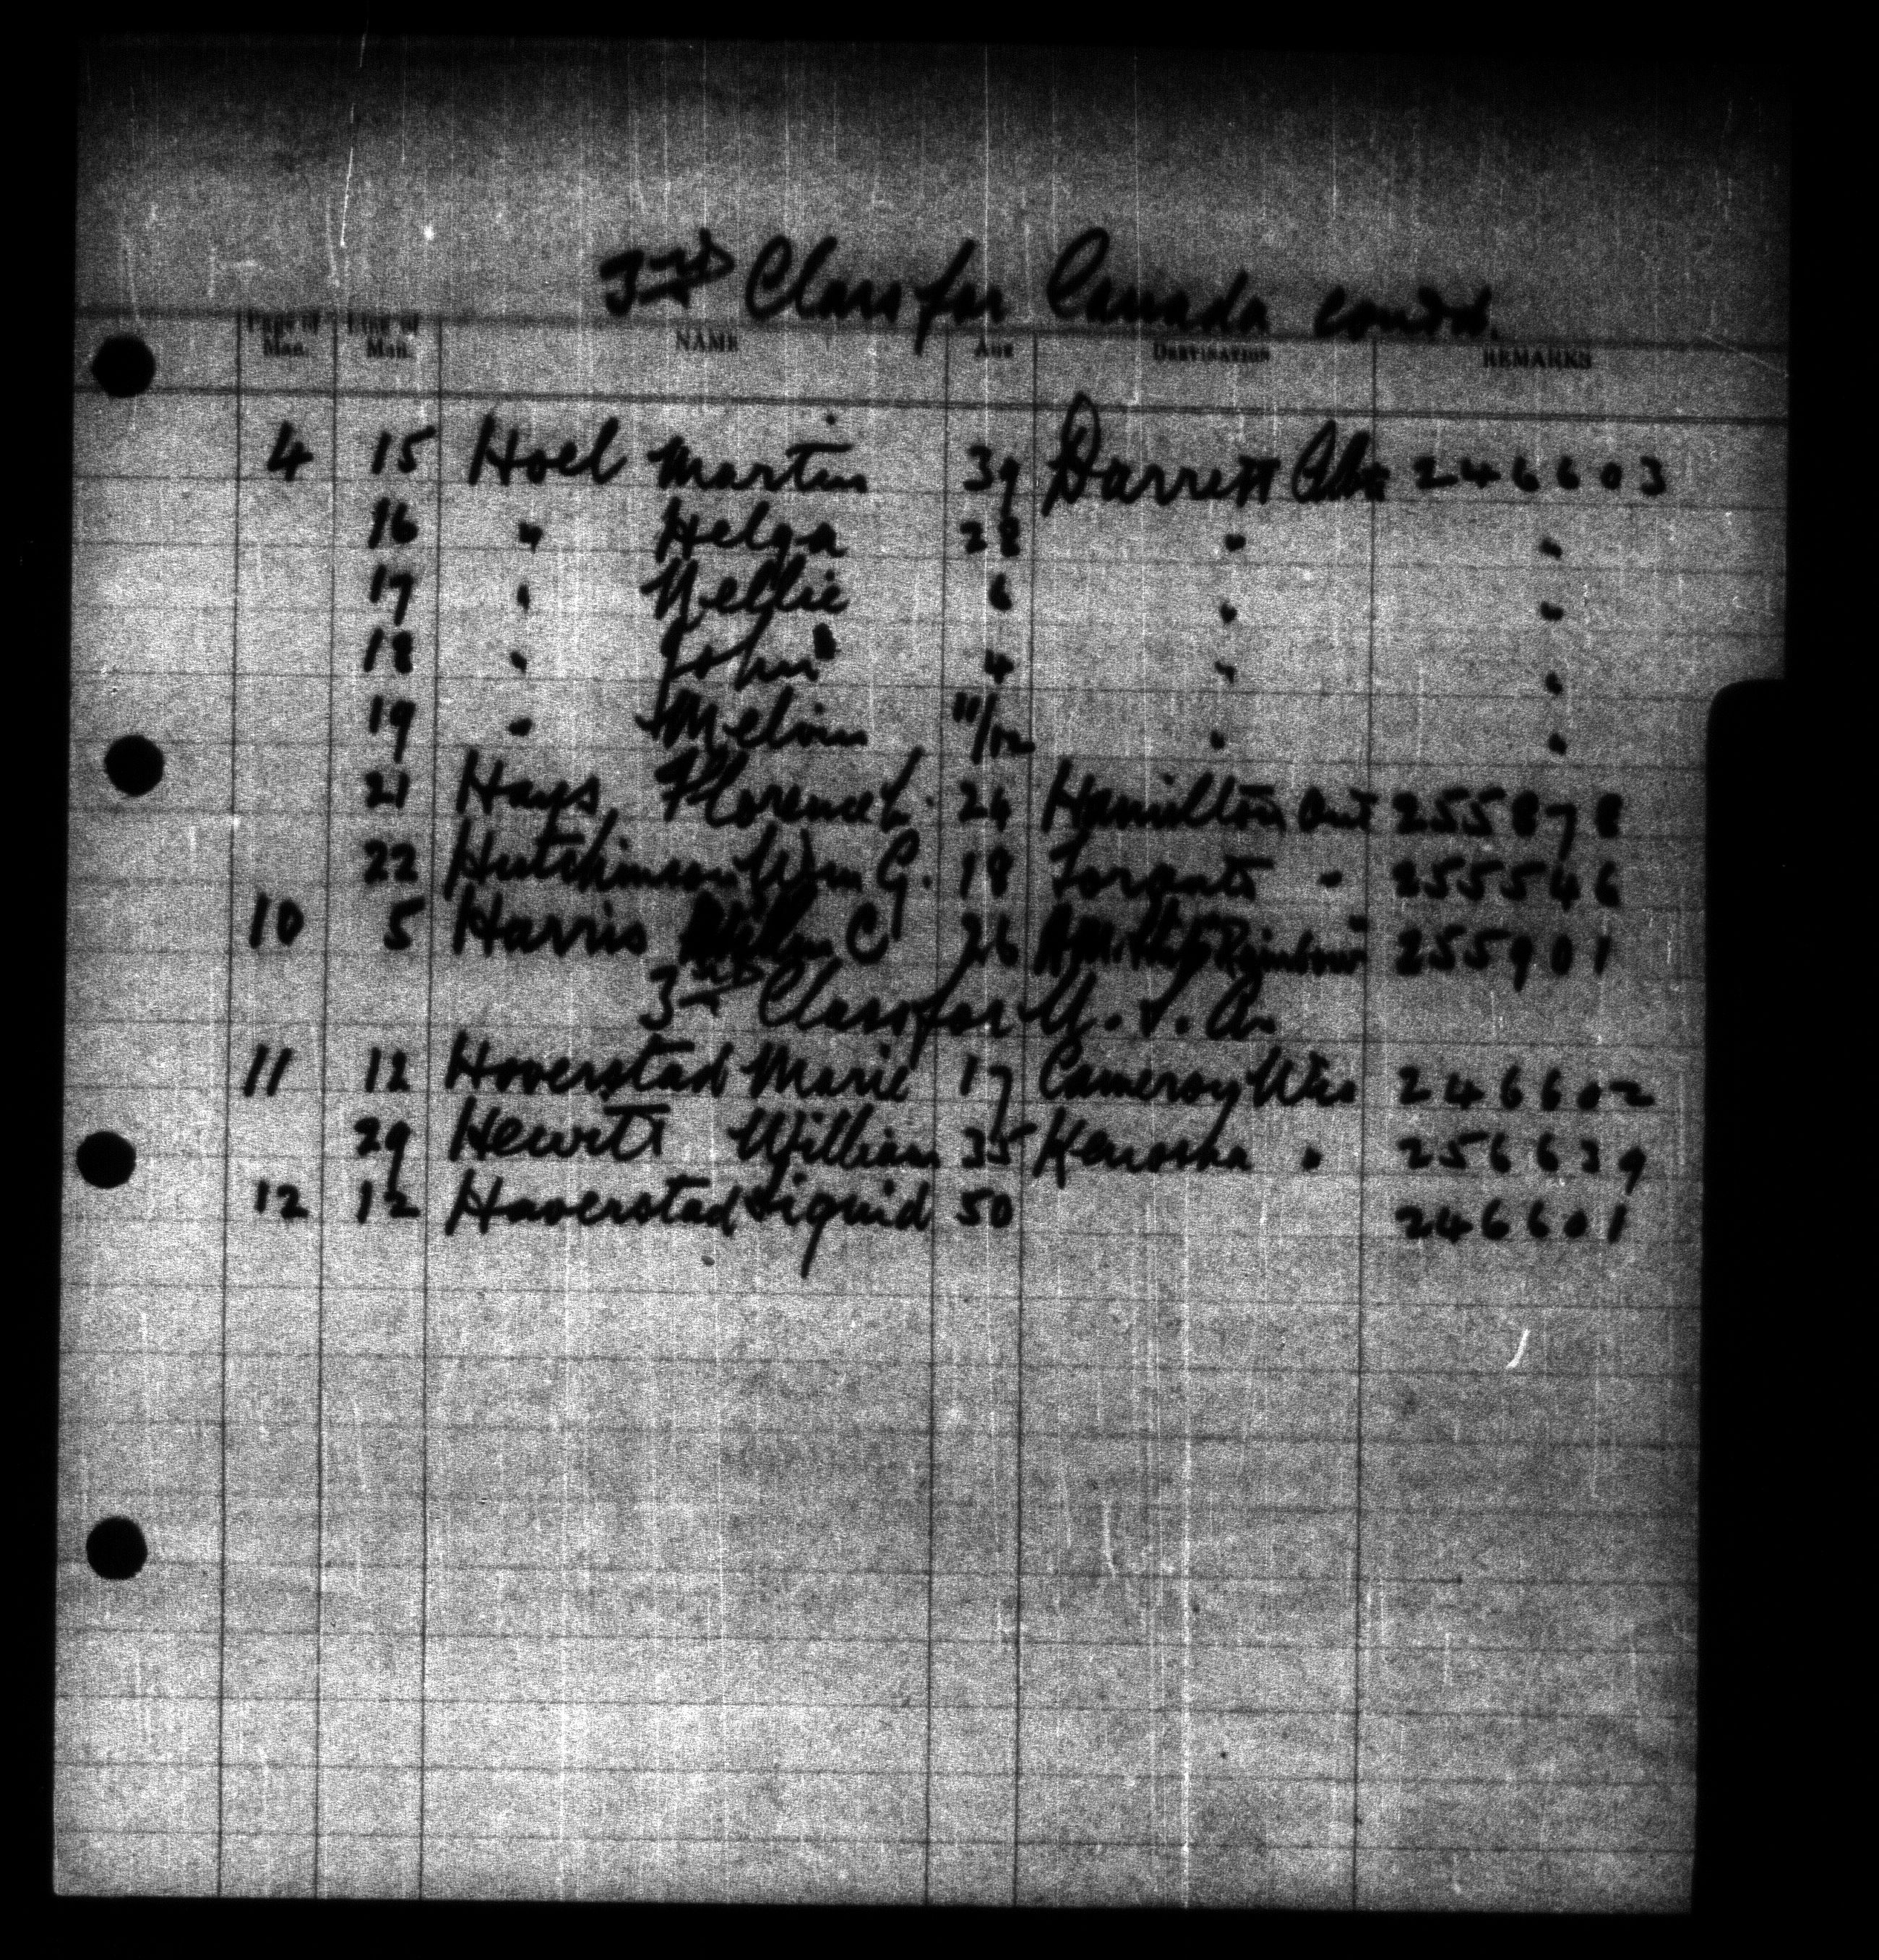 3rd Class for Canada contd.
Page of Man. Line of Man. NAME AGE DESTINATION REMARKS
4 15 Hoel Martin 39 Alta 246603
16 " Helga 28 " "
17 " Nellie 6 " "
18 " John 4 " "
19 " Melvin 11/12 " "
21 Hays Florence L. 24 Hamilton Ont 255878
22 Hutchinson Wm G. 18 Toronto " 255546
10 5 Harris C 26 Rainbow" 255901
3rd Class for U.S.A.
11 12 Hoverstad Marie 17 Wis 246602
29 Hewitt William 35 Kenosha " 256639
12 12 Haverstad Siguid 50 246601